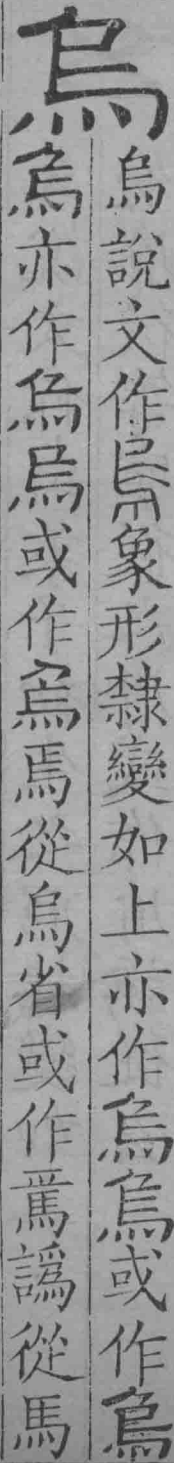 烏
烏說文作烏象形隸變如上亦作烏烏或作烏
烏亦作烏烏或作烏焉從烏省或作駡譌從馬